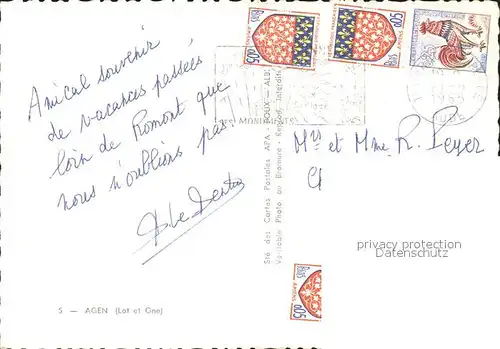 Amical souvenir
de vacances passées
loin de Romont que
nous n'oublions pas.
Mr et Mme R. Peyer
privacy protection
5 — AGEN (Lot et Gne)
Sté des Cartes Postales APA - POUX - ALBI
Véritable Photo au Bromure - Reprod. Interdite
MONUMENTS
0,05
AMIENS
0,05
AMIENS
0,25
0,05
AMIENS